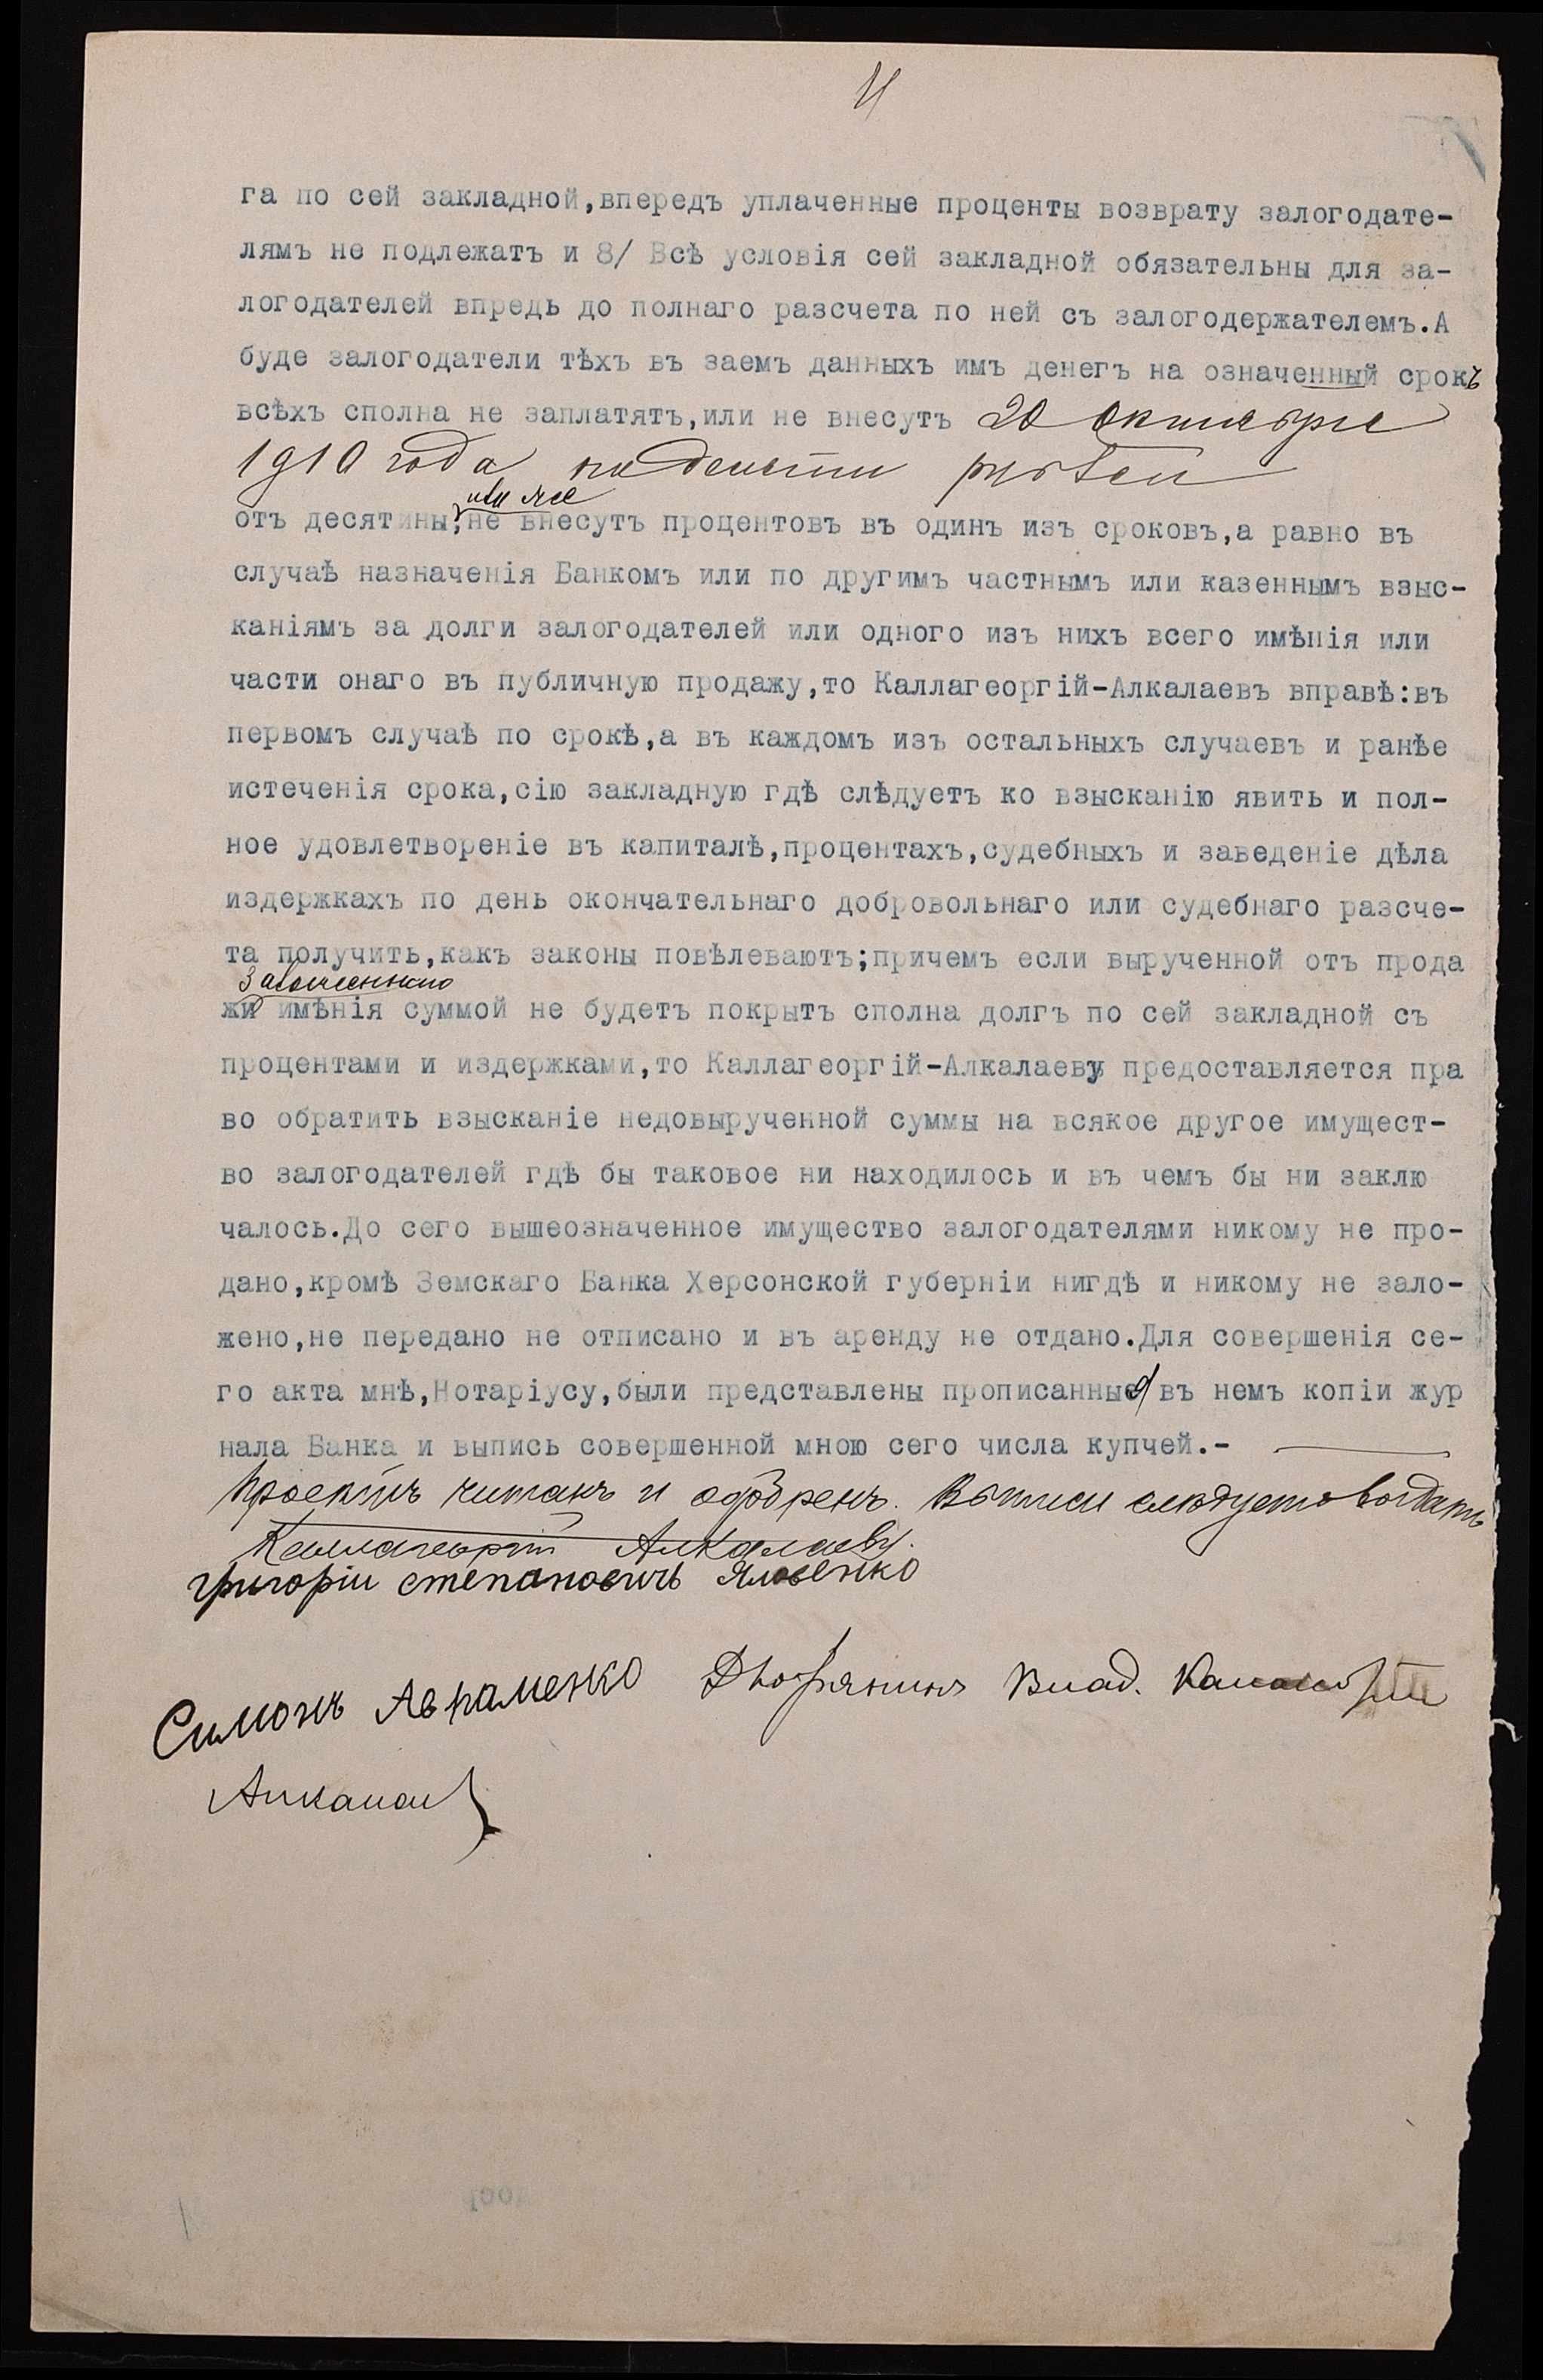 4
га по сей закладной,впередъ уплаченные проценты возврату залогодате-
лямъ не подлежатъ и 8/ Всѣ условія сей закладной обязательны для за-
логодателей впредь до полнаго разсчета по ней съ залогодержателемъ.А
буде залогодатели тѣхъ въ заемъ данныхъ имъ денегъ на означенный срокъ
всѣхъ сполна не заплатятъ,или не внесутъ 20 Октября
1910 года по десяти рублей
или же
отъ десятины,не внесутъ процентовъ въ одинъ изъ сроковъ,а равно въ
случаѣ назначенія Банкомъ или по другимъ частнымъ или казеннымъ взыс-
каніямъ за долги залогодателей или одного изъ нихъ всего имѣнія или
части онаго въ публичную продажу,то Каллагеоргій-Алкалаевъ вправѣ:въ
первомъ случаѣ по срокѣ,а въ каждомъ изъ остальныхъ случаевъ и ранѣе
истеченія срока,сію закладную гдѣ слѣдуетъ ко взысканію явить и пол-
ное удовлетвореніе въ капиталѣ,процентахъ,судебныхъ и заведеніе дѣла
издержкахъ по день окончательнаго добровольнаго или судебнаго разсче-
та получить,какъ законы повѣлеваютъ;причемъ если вырученной отъ прода
заложеннаго
жи имѣнія суммой не будетъ покрытъ сполна долгъ по сей закладной съ
процентами и издержками,то Каллагеоргій-Алкалаеву предоставляется пра
во обратить взысканіе недовырученной суммы на всякое другое имущест-
во залогодателей гдѣ бы таковое ни находилось и въ чемъ бы ни заклю
чалось.До сего вышеозначенное имущество залогодателями никому не про-
дано,кромѣ Земскаго Банка Херсонской губерніи нигдѣ и никому не зало-
жено,не передано не отписано и въ аренду не отдано.Для совершенія се-
го акта мнѣ,Нотаріусу,были представлены прописанные въ немъ копіи жур
нала Банка и выпись совершенной мною сего числа купчей.-
Проектъ читанъ и одобренъ. Выписи слѣдуетъ выдать
Каллагеоргій Алкалаеву.
григоріи степановичъ Яловенко
Симонъ Авраменко Дворянинъ Влад. Каллагеоргій
Алкалаевъ